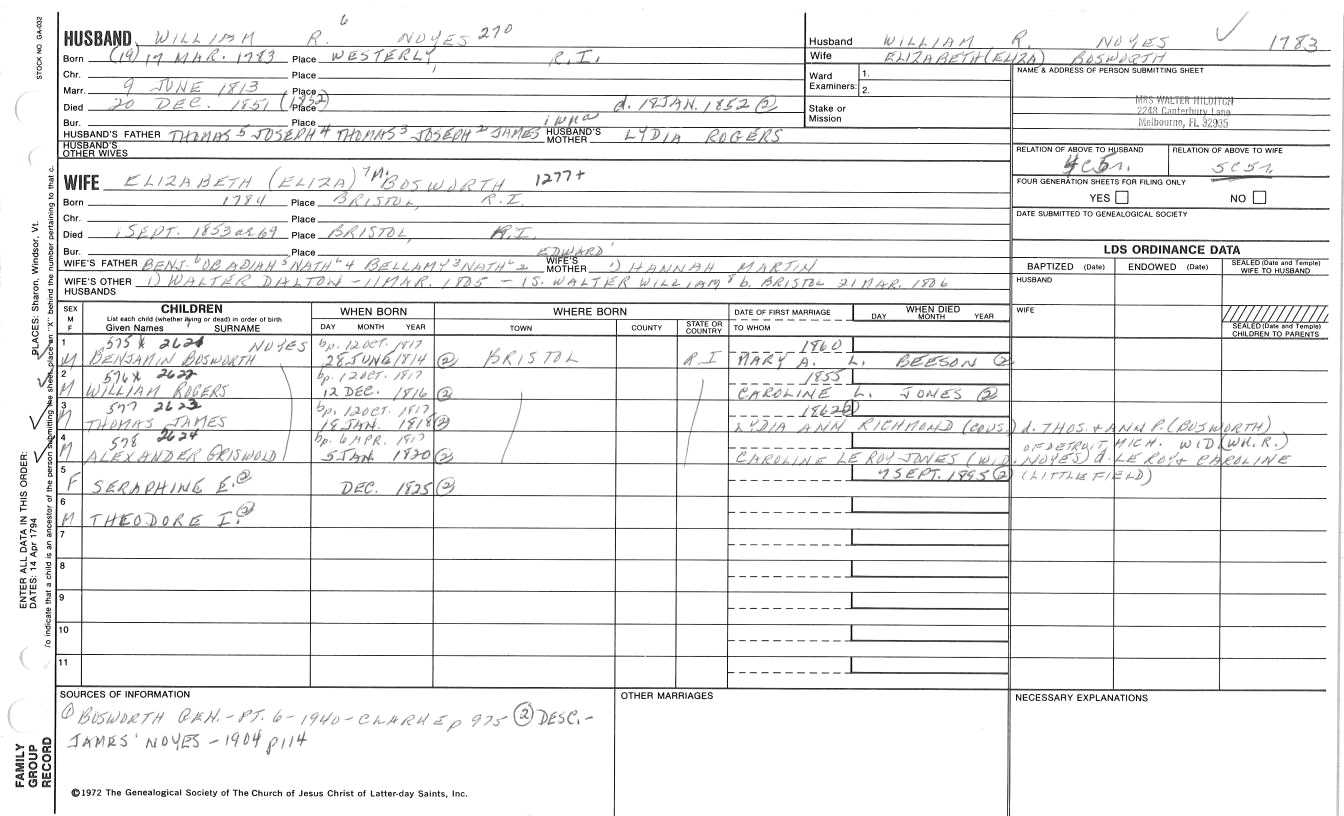 STOCK NO. GA-032
PLACES: Sharon, Windsor, Vt.
ENTER ALL DATA IN THIS ORDER:
DATES: 14 Apr 1794
To indicate that a child is an ancestor of the person submitting the sheet, place an "X" behind the number pertaining to that c.
FAMILY GROUP RECORD
HUSBAND WILLIAM R. 6 NOYES 270
Born (19) 17 MAR. 1783 Place WESTERLY, R.I.
Chr. Place
Marr. 9 JUNE 1813 Place
Died 20 DEC. 1851 (1852) Place d. 18 JAN. 1852 (2)
Bur. Place
HUSBAND'S FATHER THOMAS 5 JOSEPH 4 THOMAS 3 JOSEPH 2 JAMES HUSBAND'S MOTHER LYDIA ROGERS
HUSBAND'S OTHER WIVES
WIFE ELIZABETH (ELIZA) 7 M. BOSWORTH 1277+
Born 1784 Place BRISTOL, R.I.
Chr. Place
Died 1 SEPT. 1853 or 69 Place BRISTOL, R.I.
Bur. Place EDWARD 1
WIFE'S FATHER BENJ. 6 OBADIAH 5 NATH'L 4 BELLAMY 3 NATH'L 2 WIFE'S MOTHER 1) HANNAH MARTIN
WIFE'S OTHER HUSBANDS 1) WALTER DALTON - 11 MAR. 1805 - 1 S. WALTER WILLIAM 8 b. BRISTOL 21 MAR. 1806
Husband WILLIAM R. NOYES 1783
Wife ELIZABETH (ELIZA) BOSWORTH
Ward Examiners: 1. 2.
Stake or Mission
NAME & ADDRESS OF PERSON SUBMITTING SHEET
MRS WALTER HILDITCH
2248 Canterbury Lane
Melbourne, FL 32935
RELATION OF ABOVE TO HUSBAND RELATION OF ABOVE TO WIFE
4C5r. 5C5r.
FOUR GENERATION SHEETS FOR FILING ONLY
YES NO
DATE SUBMITTED TO GENEALOGICAL SOCIETY
LDS ORDINANCE DATA
BAPTIZED (Date) ENDOWED (Date) SEALED (Date and Temple) WIFE TO HUSBAND
HUSBAND
WIFE
SEALED (Date and Temple) CHILDREN TO PARENTS
SEX M F
CHILDREN
List each child (whether living or dead) in order of birth
Given Names SURNAME
WHEN BORN
DAY MONTH YEAR
WHERE BORN
TOWN COUNTY STATE OR COUNTRY
DATE OF FIRST MARRIAGE
TO WHOM
WHEN DIED
DAY MONTH YEAR
1 575 X 2621 NOYES bp. 12 OCT. 1817 1860
M BENJAMIN BOSWORTH 28 JUNE 1814 (2) BRISTOL R I MARY A. L. BEESON (2)
2 576 X 2622 bp. 12 OCT. 1817 1855
M WILLIAM ROGERS 12 DEC. 1816 (2) CAROLINE L. JONES (2)
3 577 2623 bp. 12 OCT. 1817 1862 (2)
M THOMAS JAMES 18 JAN. 1818 (2) LYDIA ANN RICHMOND (COUS.) d. THOS. + ANN P. (BOSWORTH)
4 578 2624 bp. 6 APR. 1817 OF DETROIT, MICH. WID (WM. R.)
M ALEXANDER GRISWOLD 5 JAN. 1820 (2) CAROLINE LE ROY JONES (WID. NOYES) d. LE ROY + CAROLINE
5 7 SEPT. 1895 (2) (LITTLEFIELD)
F SERAPHINE E. (2) DEC. 1825 (2)
6
M THEODORE I. (2)
7
8
9
10
11
SOURCES OF INFORMATION
(1) BOSWORTH GEN. - PT. 6 - 1940 - CLARKE p 975 (2) DESC. -
JAMES 1 NOYES - 1904 p 114
OTHER MARRIAGES
NECESSARY EXPLANATIONS
©1972 The Genealogical Society of The Church of Jesus Christ of Latter-day Saints, Inc.